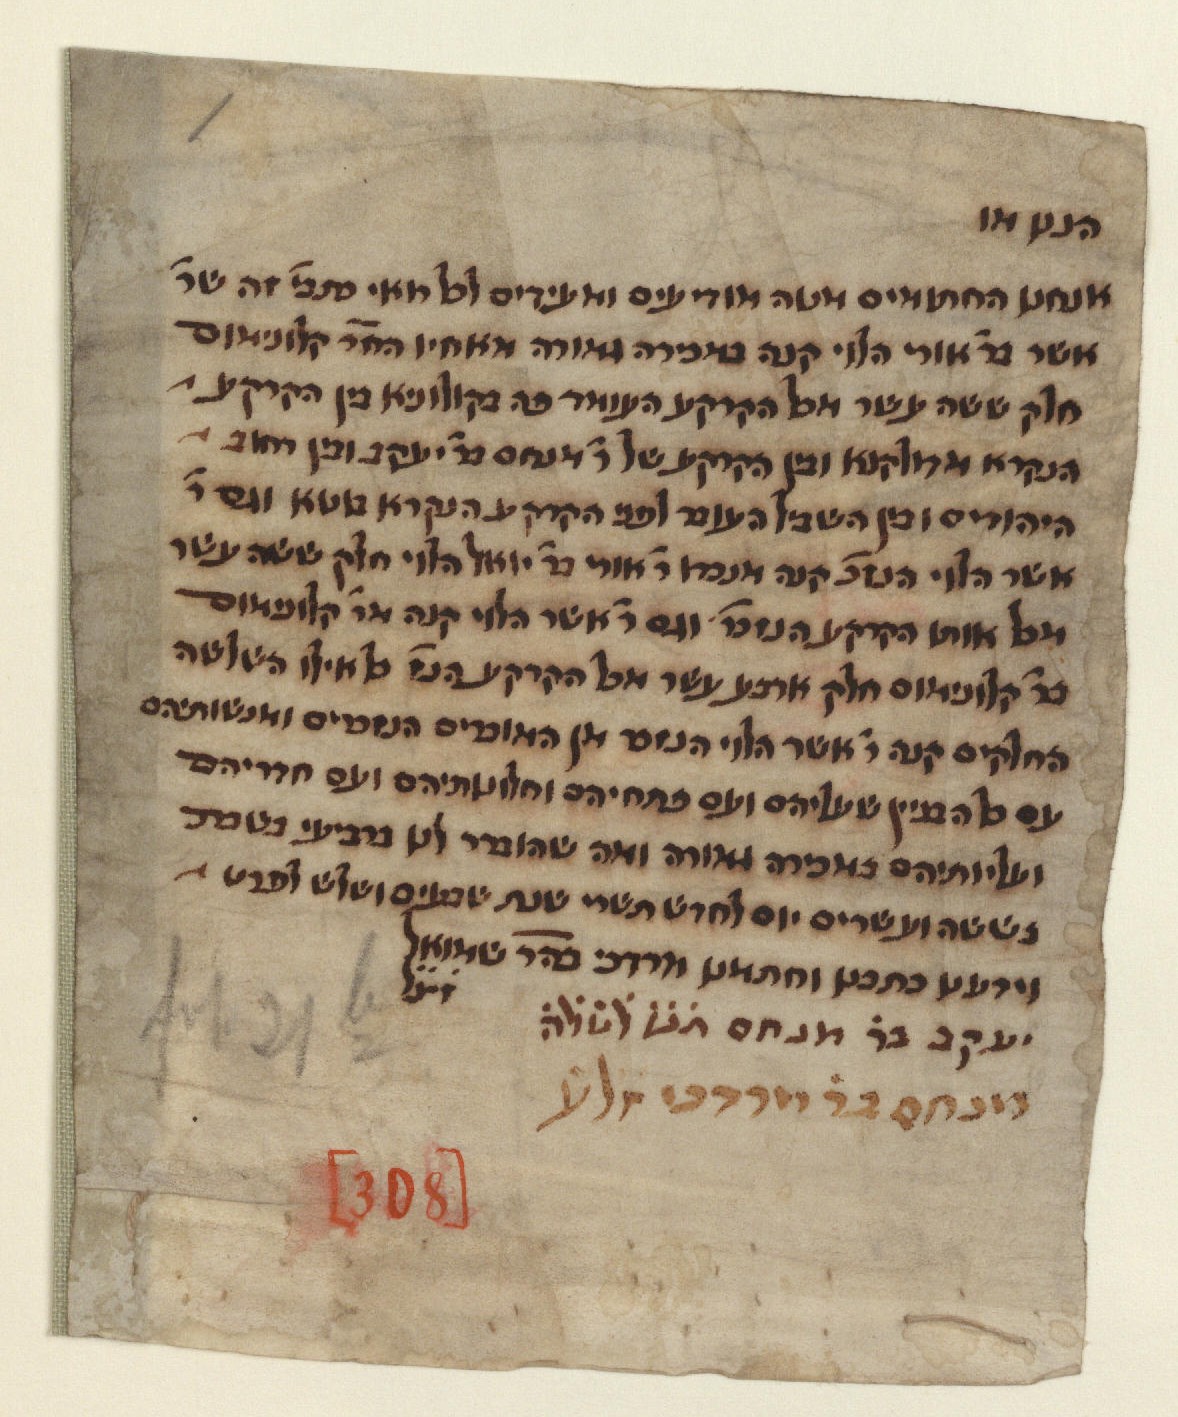 אנחנו החתומים מטה מודיעים ומעידים לכל רואי כתב' זה שר'
אשר בר' אורי הלוי קנה במכירה גמורה מאחיו הח"ר קלונימוס
חלק ששה עשר מכל הקרקע העומד פה בקולוניא בין הקרקע
הנקרא ובין הקרקע של ר' מנחם בר' יעקב ובין רחוב
היהודים ובין השביל העובר לפני הקרקע הנקרא וגם ר'
אשר הלוי הנז' קנה ר' אורי בר' יואל הלוי חלק ששה עשר
מכל אותו הקרקע הנזכר' וגם ר' אשר הלוי קנה מר' קלונימוס
בר' קלונימוס חלק ארבע עשר מכל הקרקע הנז' כל אילו השלשה
החלקים קנה ר' אשר הלוי הנזכר מן המוכרים הנזכרים ומנשותיהם
עם כל הבניין שעליהם ועם פתחיהם וחלונותיהם ועם חדריהם
ועליותיהם במכירה גמורה ומה שהוברר לנו ברביעי בשבת
בששה ועשרים יום לחדש תשרי שנת שבעים ושלש לפרט
וידענו כתבנו וחתמנו מרדכי בהר' שמואל
יעקב בר' מנחם
מנחם בר' מרדכי
[308]